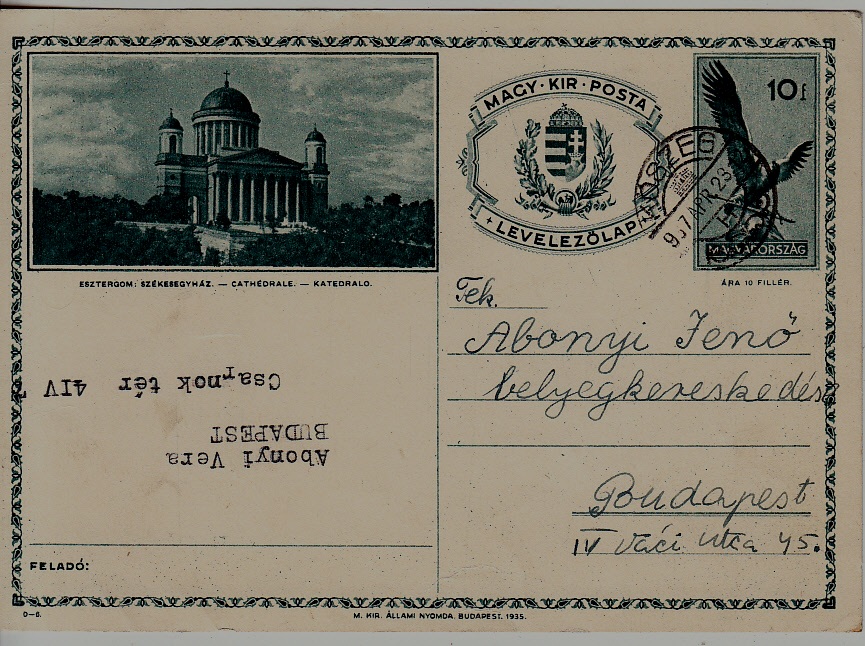 MAGY · KIR · POSTA
+ LEVELEZŐLAP
10 f
MAGYARORSZÁG
KŐSZEG
937 APR 23
ÁRA 10 FILLÉR.
ESZTERGOM: SZÉKESEGYHÁZ. — CATHÉDRALE. — KATEDRALO.
Tek.
Abonyi Jenő
bélyegkereskedés
Budapest
IV Váci utca 45.
Abonyi Vera
BUDAPEST
Csarnok tér 4IV
FELADÓ:
0–6.
M. KIR. ÁLLAMI NYOMDA. BUDAPEST. 1935.